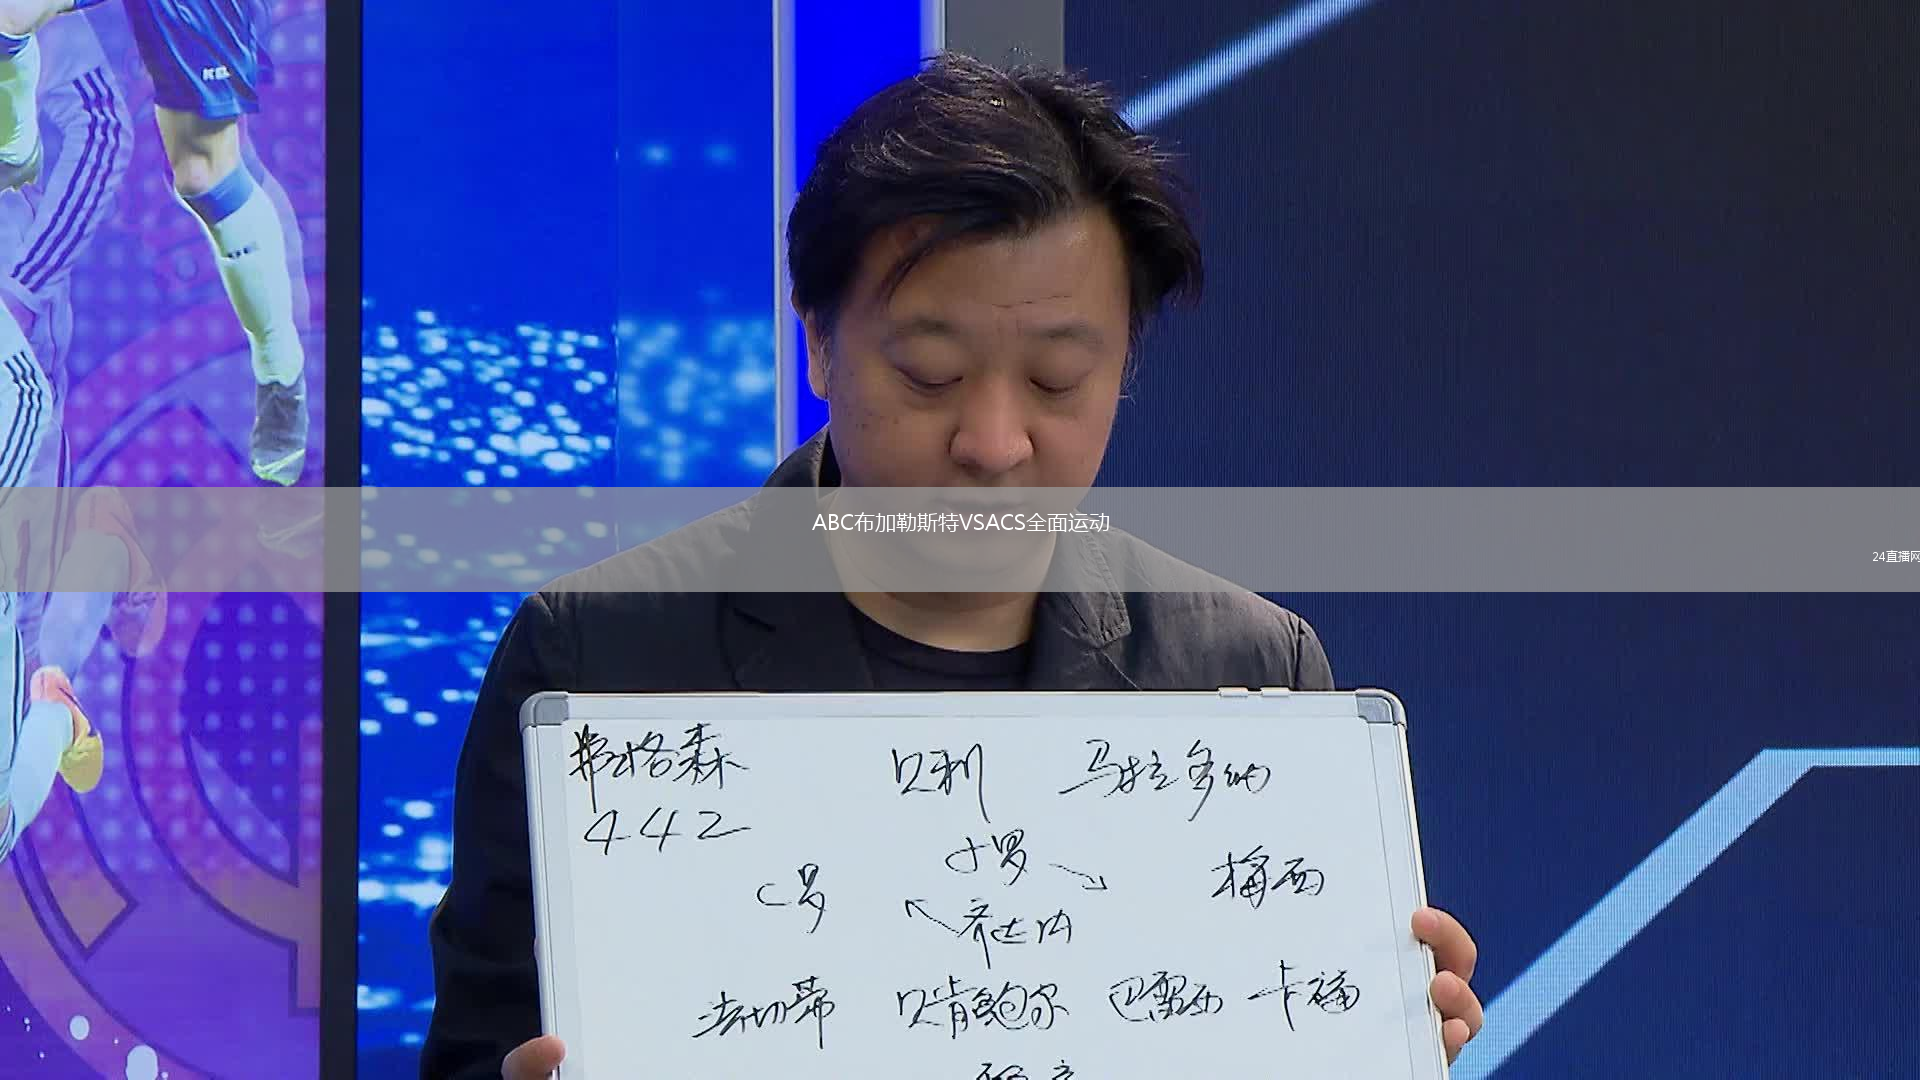 ABC布加勒斯特VSACS全面运动
24直播网
弗格森 贝利 马拉多纳
442
小罗
C罗 梅西
齐达内
法切蒂 贝肯鲍尔 巴雷西 卡福